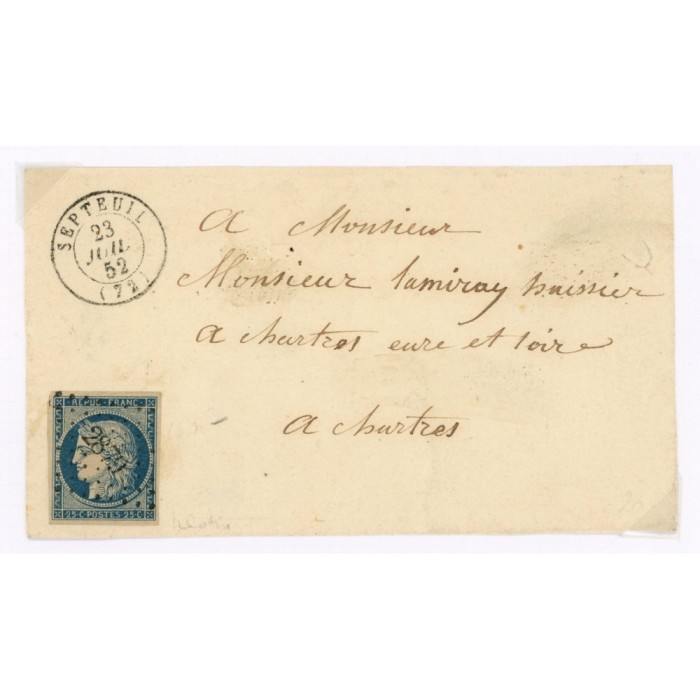 SEPTEUIL
23
JUIL
52
(72)
A Monsieur
Monsieur lamiray huissier
a chartres eure et loire
A chartres
REPUB-FRANC
25-C-POSTES-25-C